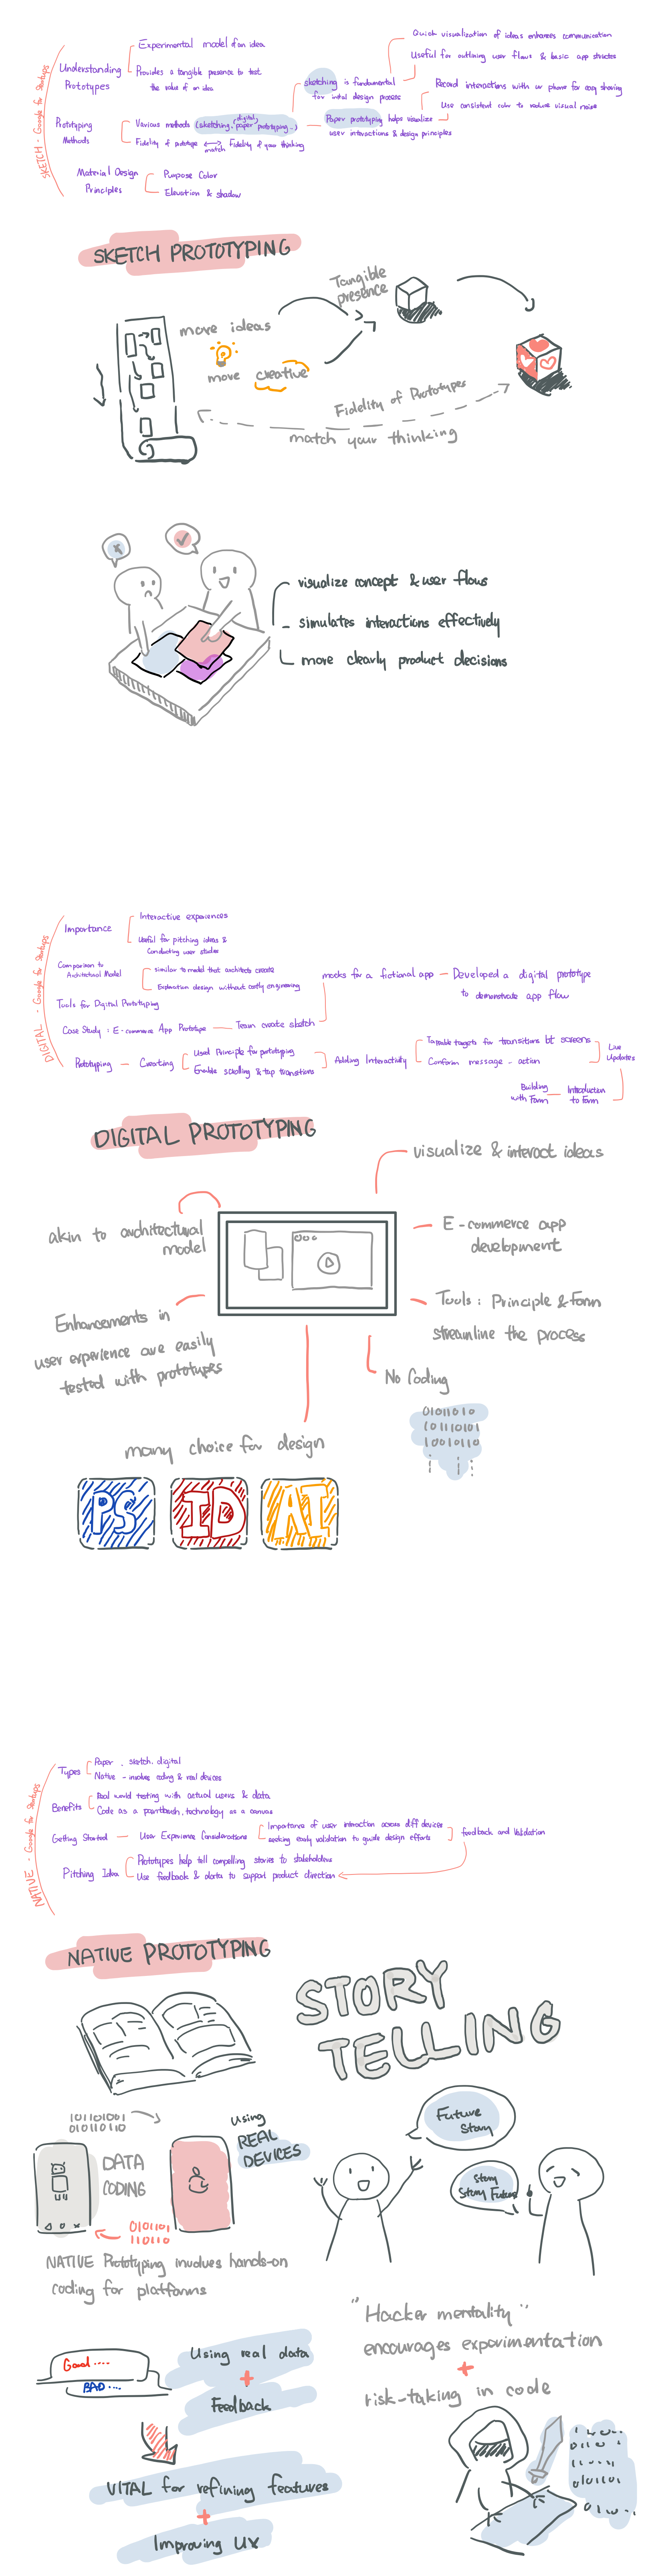 SKETCH - Google for Startups
Understanding
Prototypes
Experimental model of an idea
Provides a tangible presence to test
the value of an idea
Prototyping
Methods
Various methods (sketching, paper prototyping..)
digital,
Fidelity of prototype ↔ Fidelity of your thinking
match
sketching is fundamental
for initial design process
Quick visualization of ideas enhances communication
Useful for outlining user flows & basic app
Paper prototyping helps visualize
user interactions & design principles
Record interactions with phone for easy sharing
Use consistent color to reduce visual noise
Material Design
Principles
Purpose Color
Elevation & shadow
SKETCH PROTOTYPING
more ideas
more creative
Tangible
presence
Fidelity of Prototypes
match your thinking
visualize concept & user flows
simulates interactions effectively
more clearly product decisions
DIGITAL - Google for Startups
Importance
Interactive experiences
Useful for pitching ideas &
Conducting user studies
Comparison to
Architectual Model
similar to model that architects create
design without costly engineering
Tools for Digital Prototyping
Case Study : E-commerce App Prototype
Team create sketch
mocks for a fictional app
Developed a digital prototype
to demonstrate app flow
Prototyping
Creating
Used Principle for prototyping
Enable scrolling & tap transitions
Adding Interactivity
Tapable targets for transitions bt screens
Conform message - action
Live
Updates
Introduction
to Form
Building
with Form
DIGITAL PROTOTYPING
visualize & interact ideas
akin to architectural
model
E-commerce app
development
Enhancements in
user experience are easily
tested with prototypes
Tools : Principle & Form
streamline the process
No Coding
01011010
10110101
10010110
many choice for design
PS
ID
AI
NATIVE - Google for Startups
Types
Paper, sketch, digital
Native - involves coding & real devices
Benefits
Real world testing with actual users & data
Code as a paintbrush, technology as a canvas
Getting Started
User Experience Considerations
Importance of user interaction across diff devices
seeking early validation to guide design efforts
feedback and Validation
Pitching Idea
Prototypes help tell compelling stories to stakeholders
Use feedback & data to support product direction
NATIVE PROTOTYPING
STORY
TELLING
101101001
010110110
DATA
CODING
Using
REAL
DEVICES
0101101
110110
Future
Story
Story
Story Future
NATIVE Prototyping involves hands-on
coding for platforms
"Hacker mentality"
encourages experimentation
+
risk-taking in code
Good ....
BAD ...
Using real data
+
Feedback
VITAL for refining features
+
Improving UX
010110